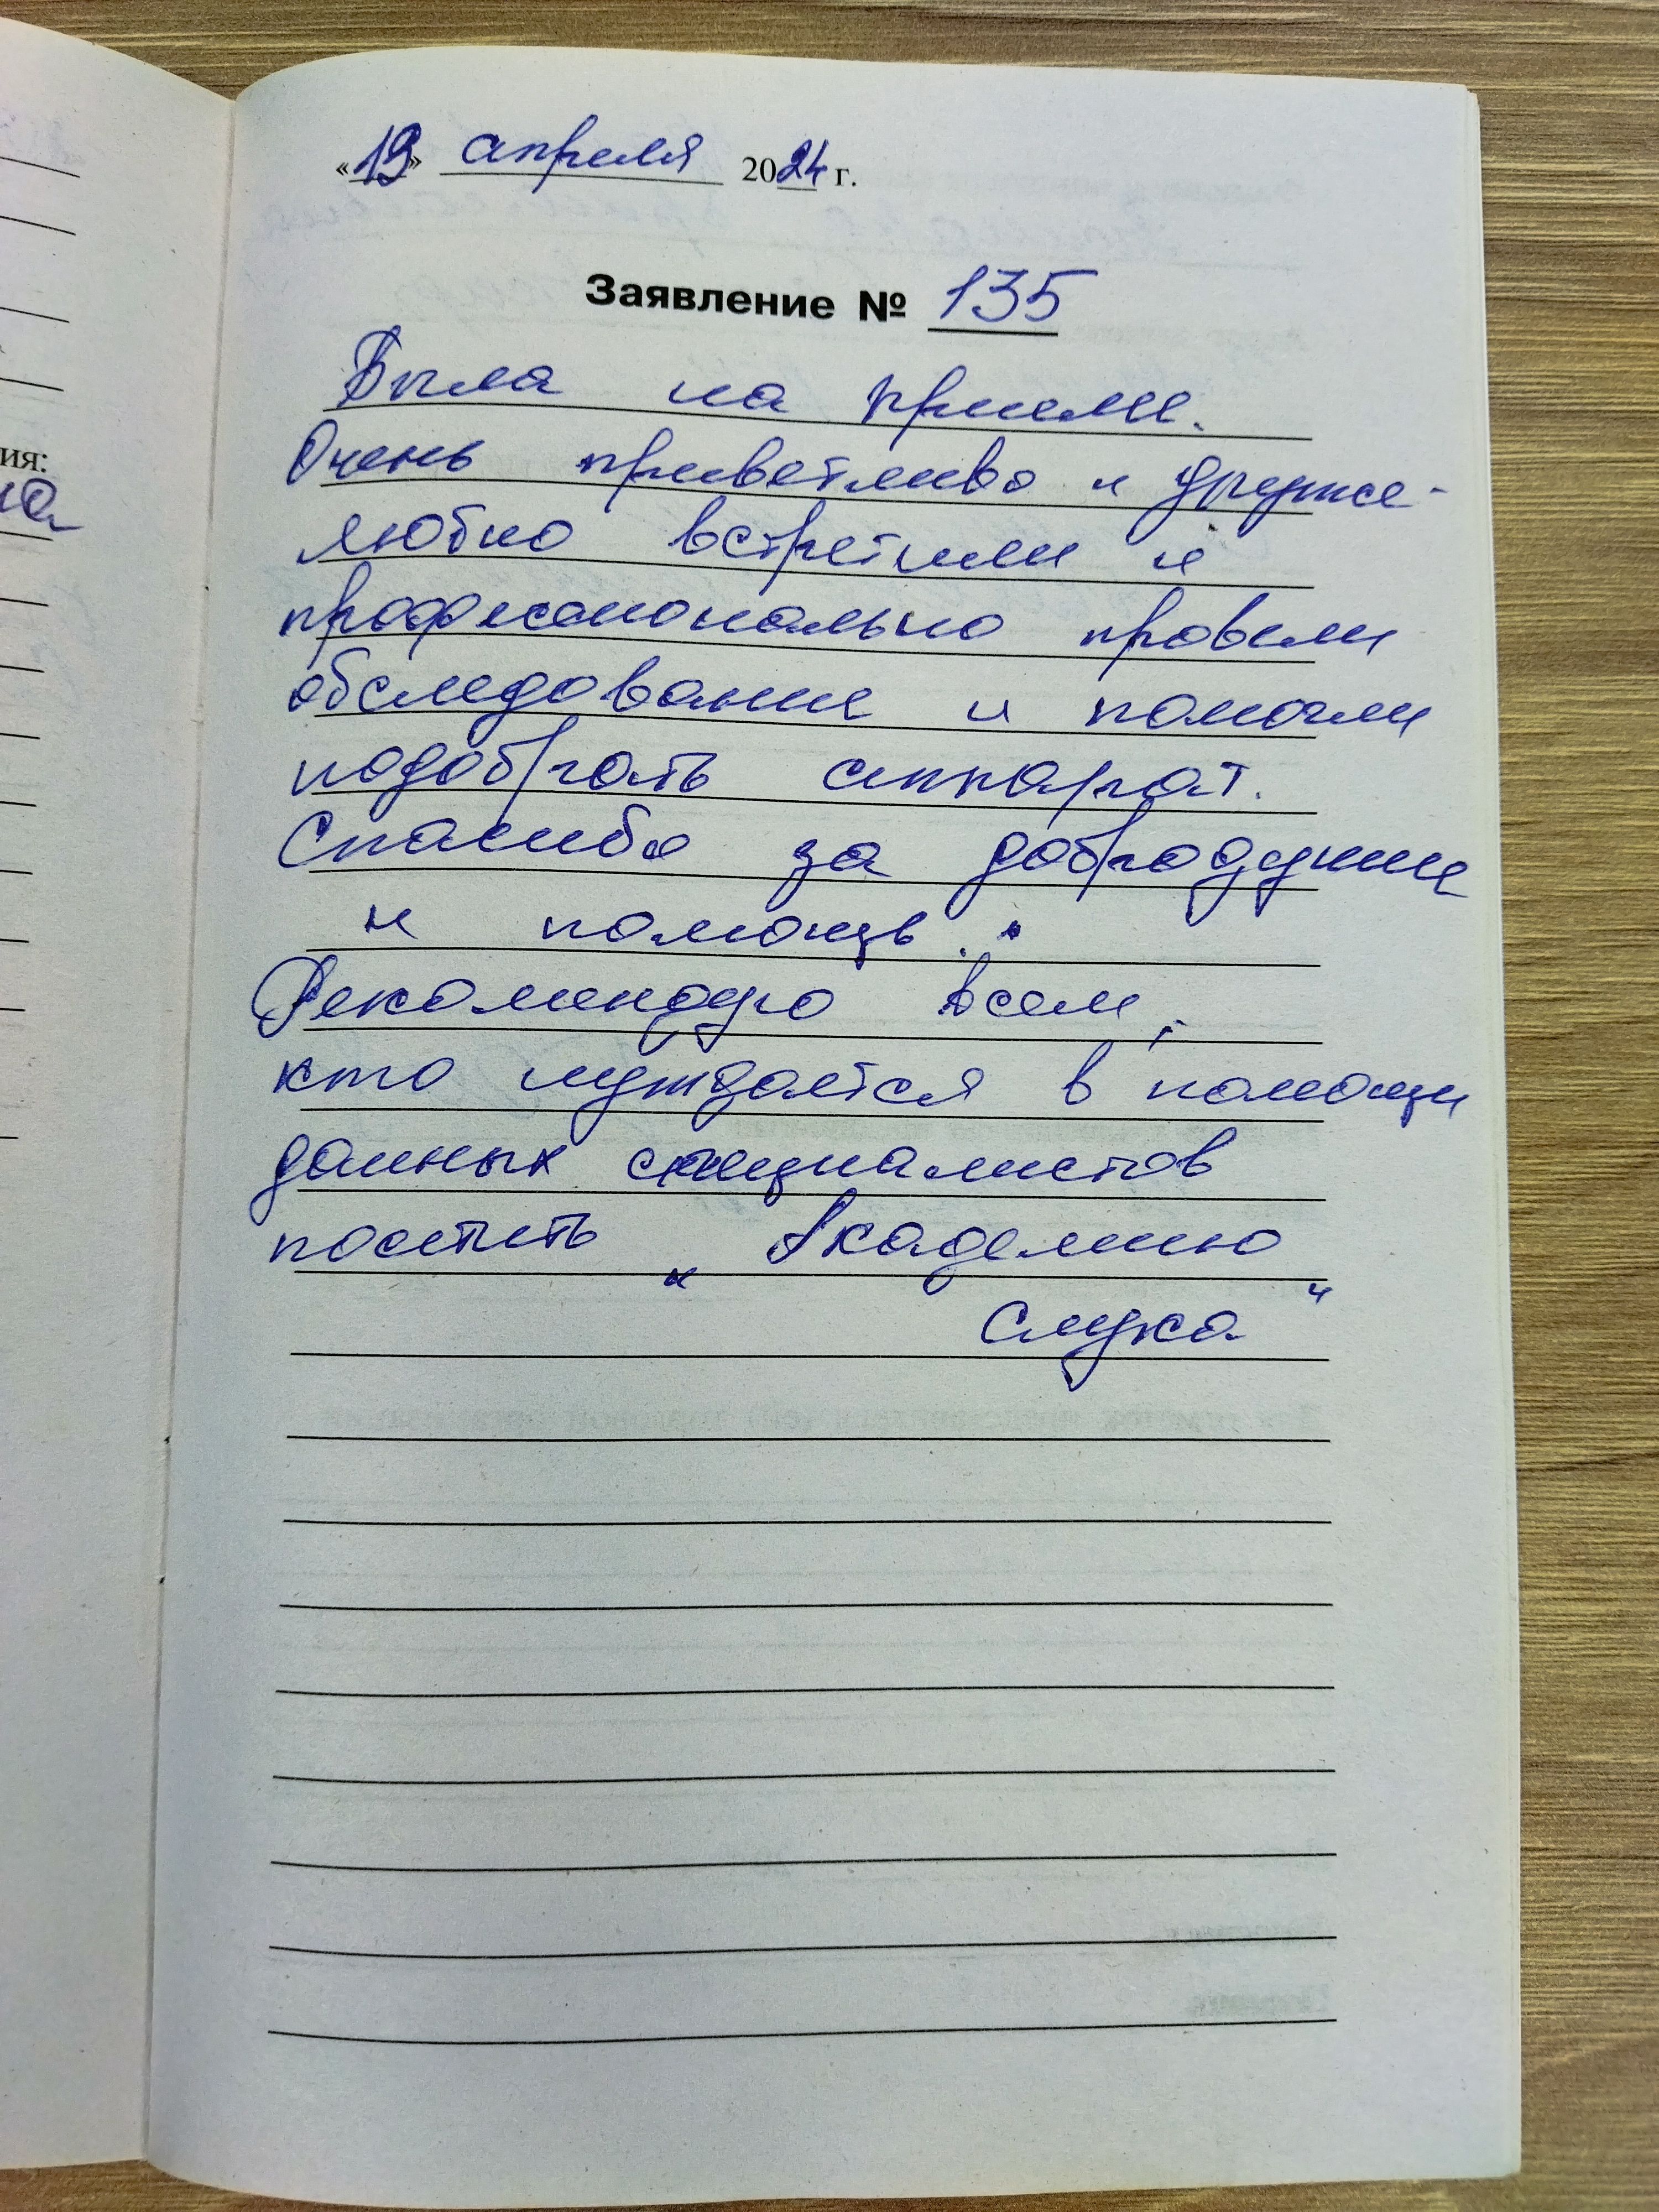 «19» апреля 2024 г.
Заявление № 135
Была на приеме.
Очень приветливо и друже-
любно встретили и
профессионально провели
обследование и помогли
подобрать аппарат.
Спасибо за добродушие
и помощь.
Рекомендую всем,
кто нуждается в помощи
данных специалистов
посетить „Академию
слуха"
ия:
на